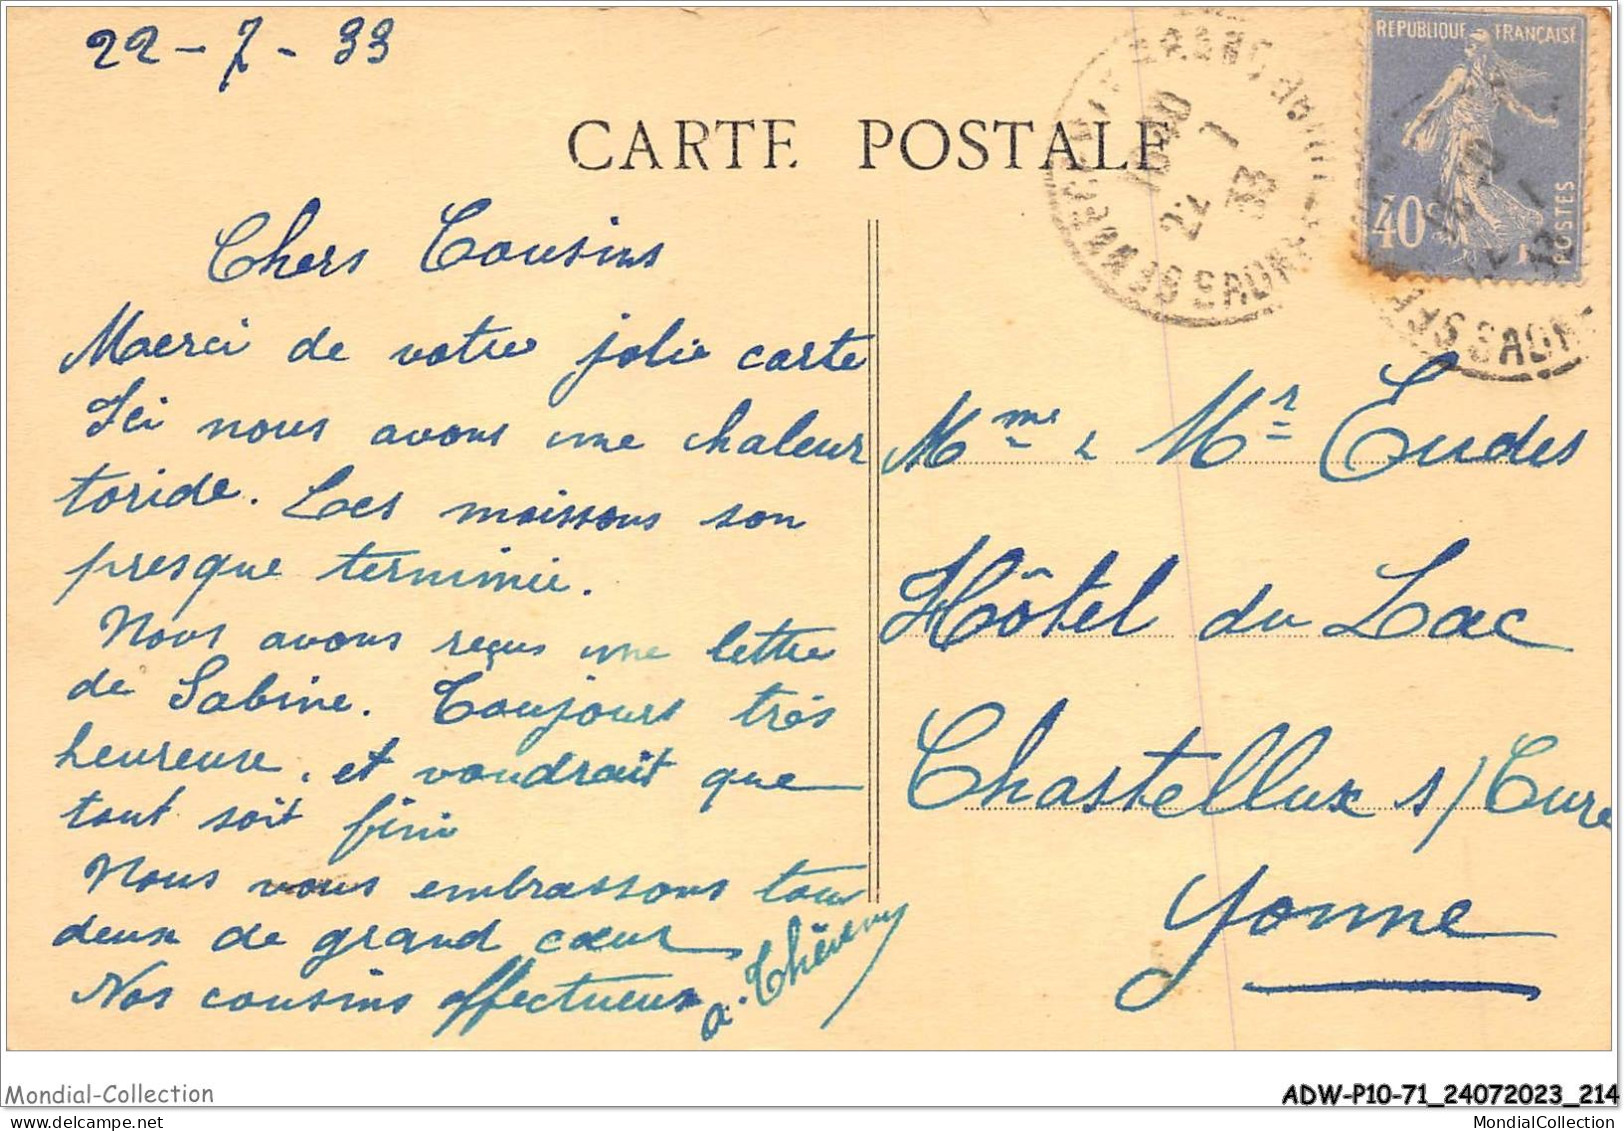 22-7-33
CARTE POSTALE
REPUBLIQUE FRANÇAISE
40
POSTES
22 7
33
SAONE
Chers Cousins
Merci de votre jolie carte
Ici nous avons une chaleur
toride. Les moissons son
presque terminée.
Nous avons reçus une lettre
de Sabine. Toujours très
heureuse. et voudrait que
tout soit fini
Nous vous embrassons tous
deux de grand cœur
Nos cousins affectueux
Mme & Mr Eudes
Hôtel du Lac
Chastellux s/Cure
Yonne
Mondial-Collection
ADW-P10-71_24072023_214
MondialCollection